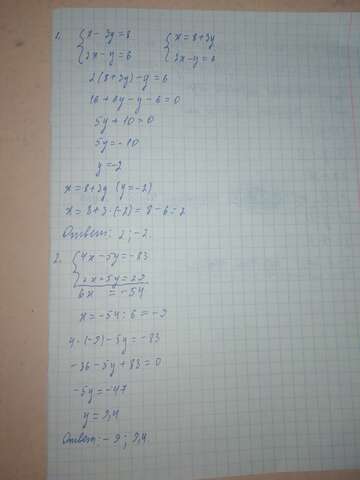 1. { x - 3y = 8 { x = 8 + 3y
2x - y = 6 2x - y = 6
2(8+3y) - y = 6
16 + 6y - y - 6 = 0
5y + 10 = 0
5y = -10
y = -2
x = 8 + 3y (y = -2)
x = 8 + 3 · (-2) = 8 - 6 = 2
Ответ: 2; -2.
2. { 4x - 5y = -83
2x + 5y = 29
6x = -54
x = -54 : 6 = -9
4 · (-9) - 5y = -83
-36 - 5y + 83 = 0
-5y = -47
y = 9,4
Ответ: -9; 9,4